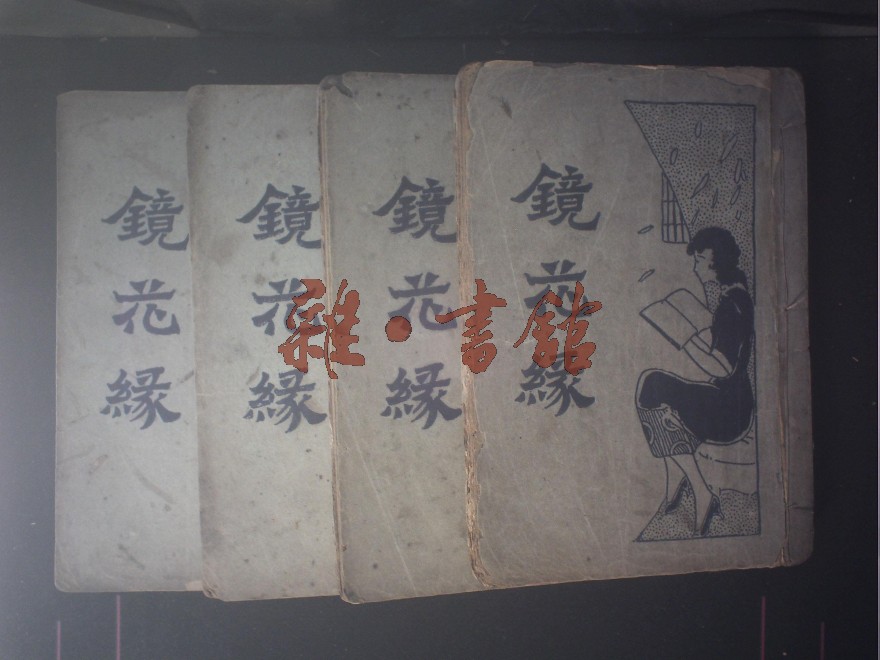 鏡花緣
鏡花緣
鏡花緣
鏡花緣
雜·書館